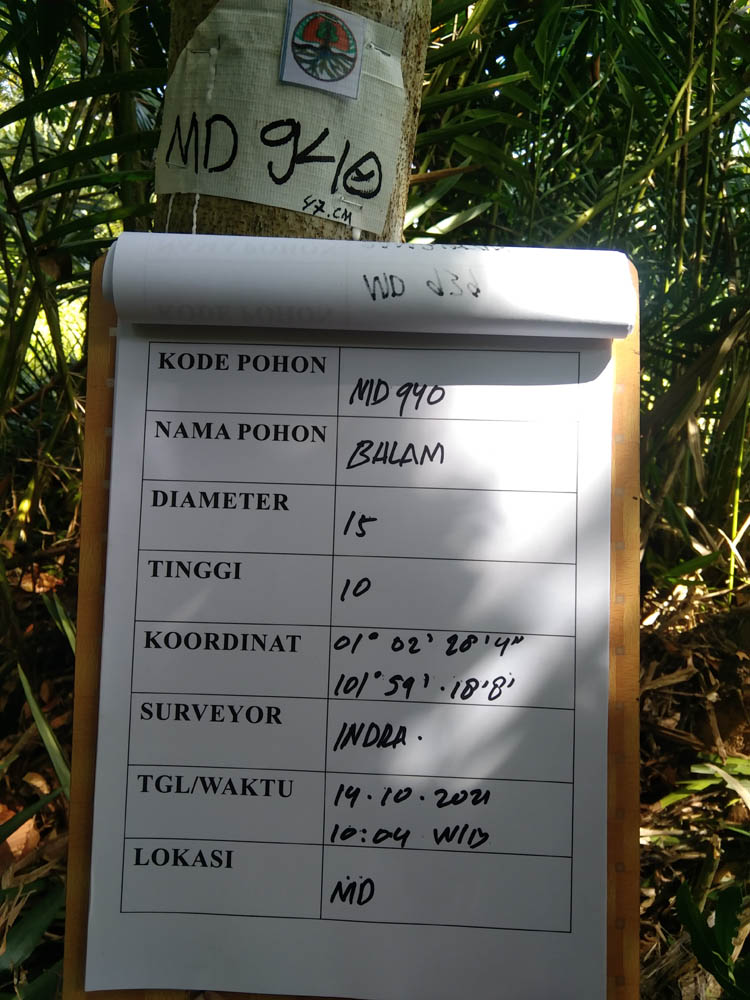 MD 940
47.CM
KODE POHON
MD 940
NAMA POHON
BALAM
DIAMETER
15
TINGGI
10
KOORDINAT
01° 02' 28'4"
101° 59' . 18'8'
SURVEYOR
INDRA .
TGL/WAKTU
14.10.2021
10:04 WIB
LOKASI
MD